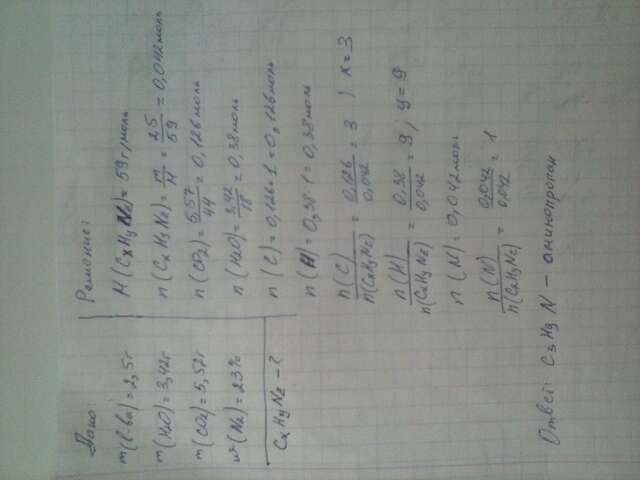 Дано:
m(в-ва) = 2,5г
m(H2O) = 3,42г
m(CO2) = 5,57г
w(N2) = 23%
CxHyNz - ?
Решение:
M(CxHyNz) = 59г/моль
n(CxHyNz) = m/M = 2,5/59 = 0,042моль
n(CO2) = 5,57/44 = 0,126моль
n(H2O) = 3,42/18 = 0,38моль
n(C) = 0,126·1 = 0,126моль
n(H) = 0,38·1 = 0,38моль
n(C)/n(CxHyNz) = 0,126/0,042 = 3; x = 3
n(H)/n(CxHyNz) = 0,38/0,042 = 9; y = 9
n(N) = 0,042моль
n(N)/n(CxHyNz) = 0,042/0,042 = 1
Ответ: C3H9N - аминопропан